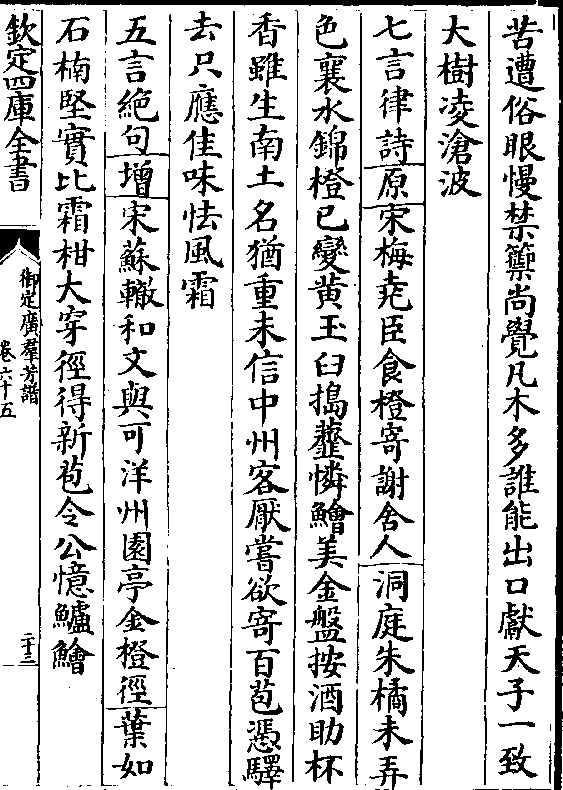 苦遭俗眼慢禁籞尚覺凡木多誰能出口獻天子一致
大樹凌滄波
七言律詩原宋梅堯臣食橙寄謝舍人洞庭朱橘未弄
色襄水錦橙已變黄玉臼搗虀憐鱠美金盤按酒助杯
香雖生南土名猶重未信中州客厭嘗欲寄百苞憑驛
去只應佳味怯風霜
五言絶句增宋蘇轍和文與可洋州園亭金橙徑葉如
石楠堅實比霜柑大穿徑得新苞令公憶鱸鱠
欽定四庫全書
御定廣羣芳譜
卷六十五
二十三